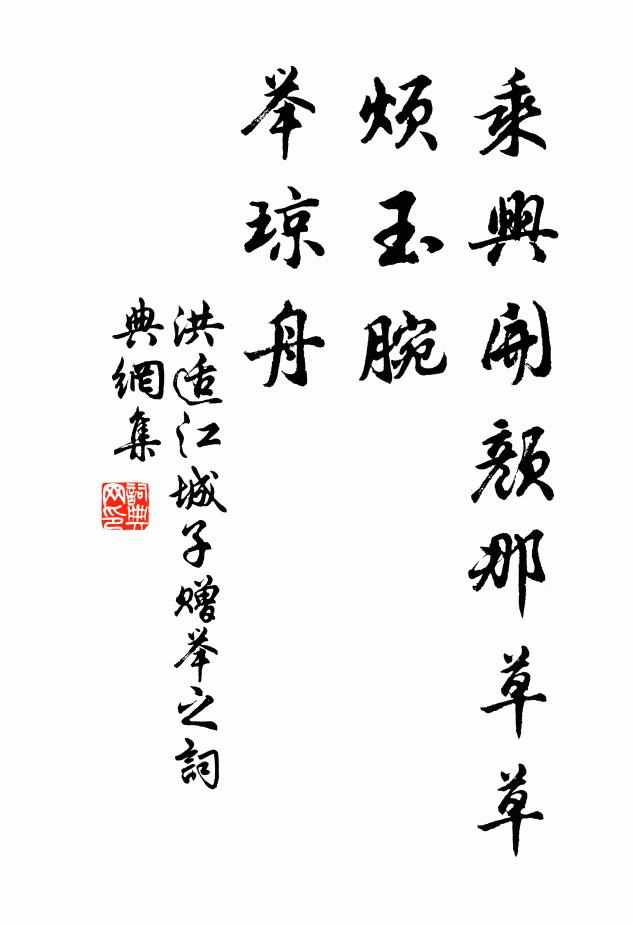 乘興開顏那草草
煩玉腕
举琼舟
洪适江城子赠举之詞
典網集
詞典網印